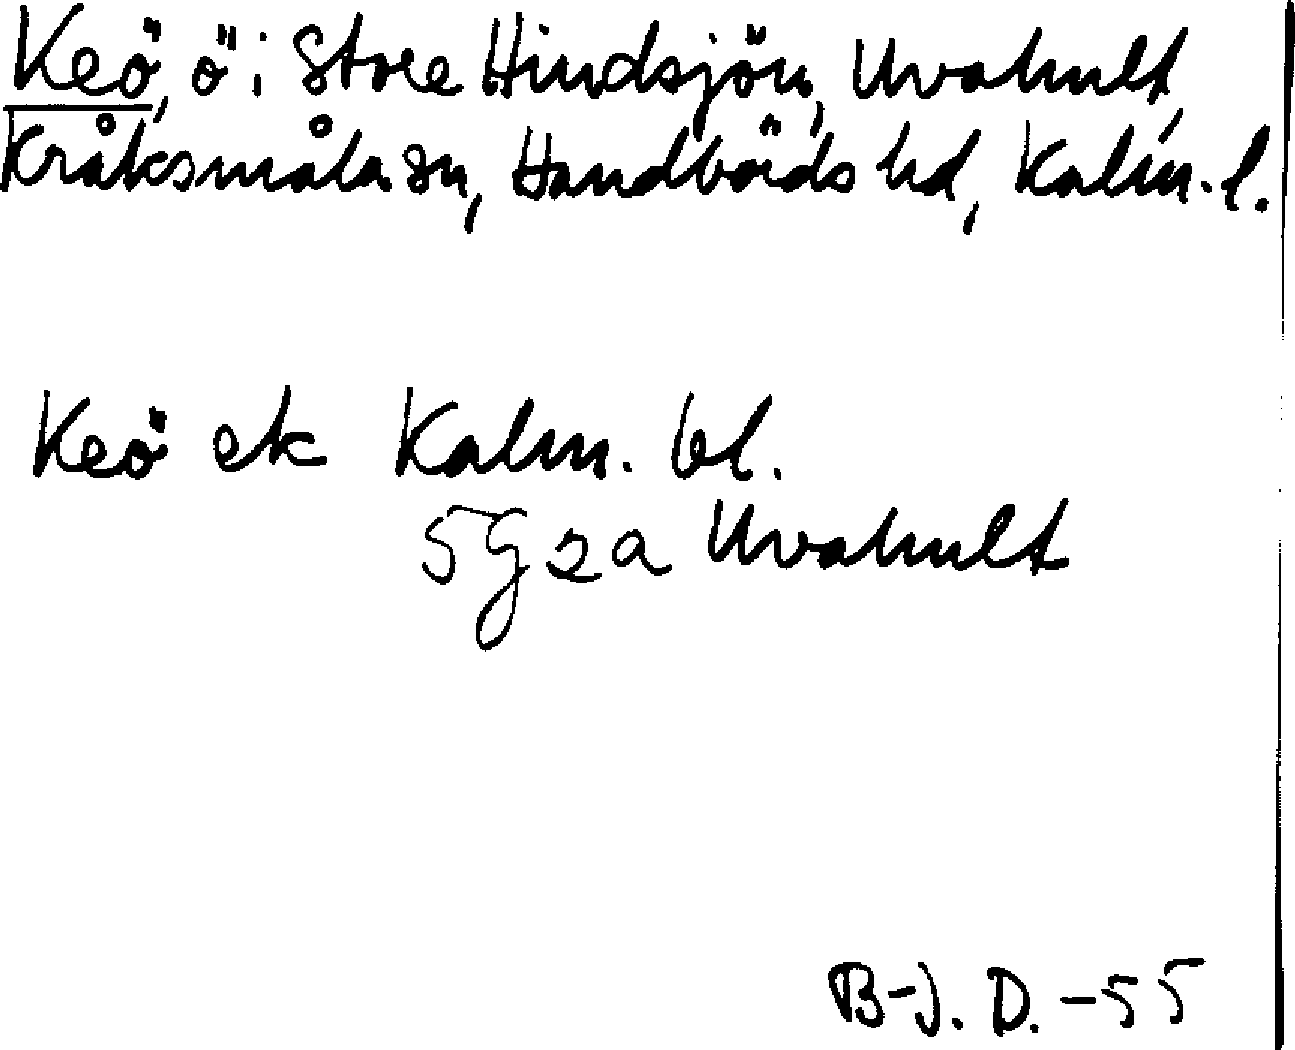 Keö, ö i Store Hindsjön, Uvahult,
Kråksmåla sn, Handbörds hd, Kalm. l.
Keö ek Kalm. bl.
5 g 2 a Uvahult
B-J. D. -55